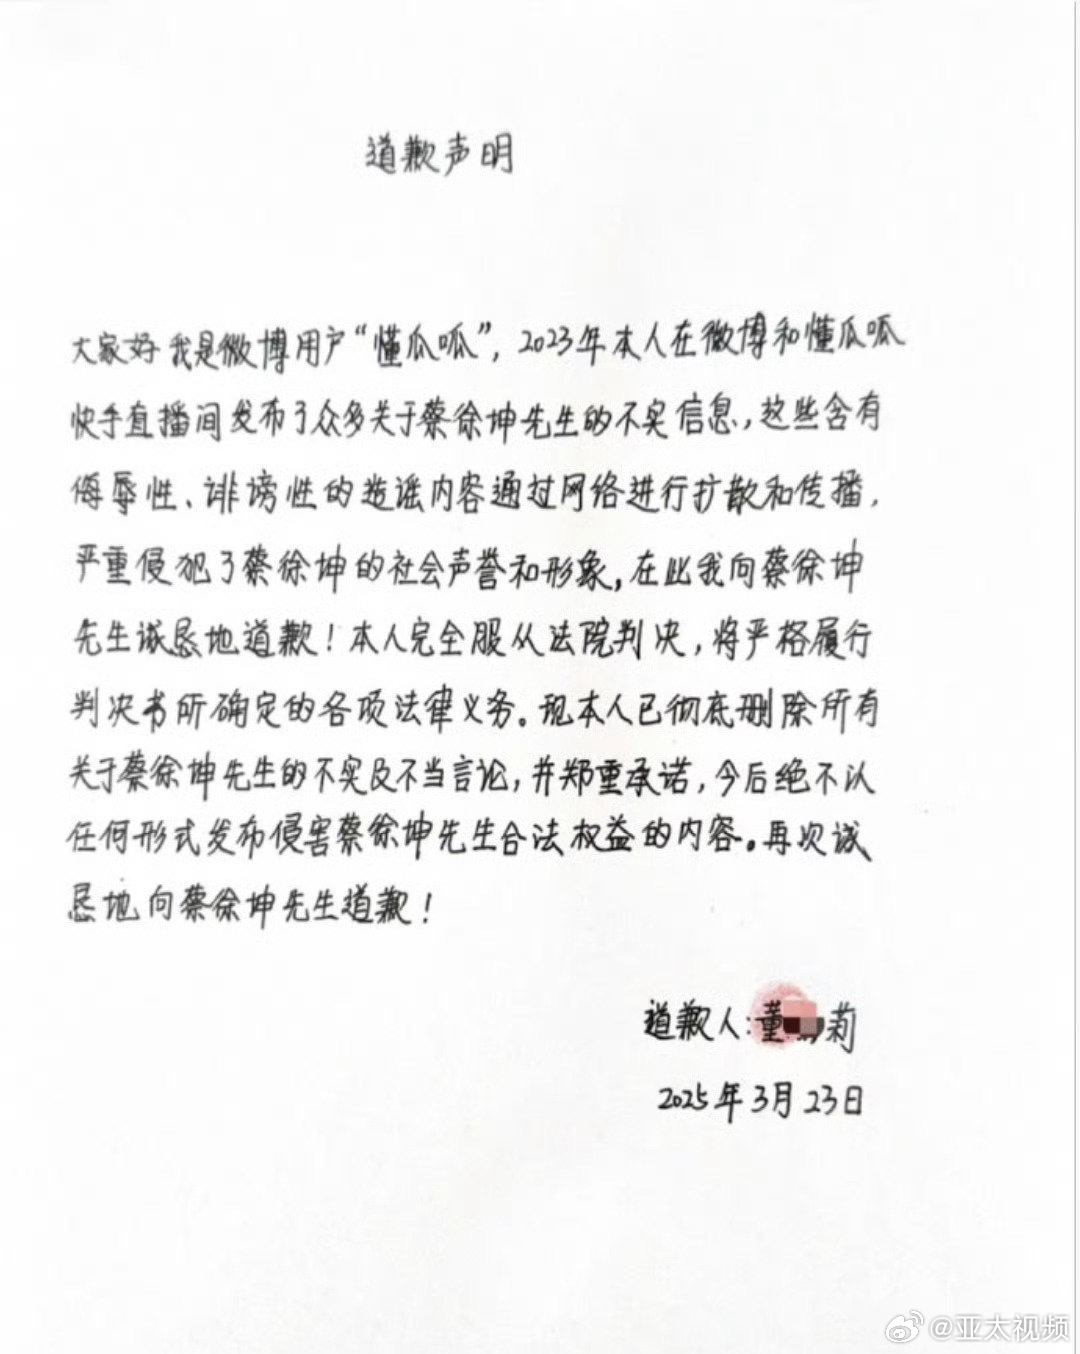 道歉声明
大家好我是微博用户“懂瓜呱”，2023年本人在微博和懂瓜呱
快手直播间发布了众多关于蔡徐坤先生的不实信息，这些含有
侮辱性、诽谤性的造谣内容通过网络进行扩散和传播，
严重侵犯了蔡徐坤的社会声誉和形象，在此我向蔡徐坤
先生诚恳地道歉！本人完全服从法院判决，将严格履行
判决书所确定的各项法律义务。现本人已彻底删除所有
关于蔡徐坤先生的不实及不当言论，并郑重承诺，今后绝不以
任何形式发布侵害蔡徐坤先生合法权益的内容。再次诚
恳地向蔡徐坤先生道歉！
道歉人：董 莉
2025年3月23日
@亚太视频